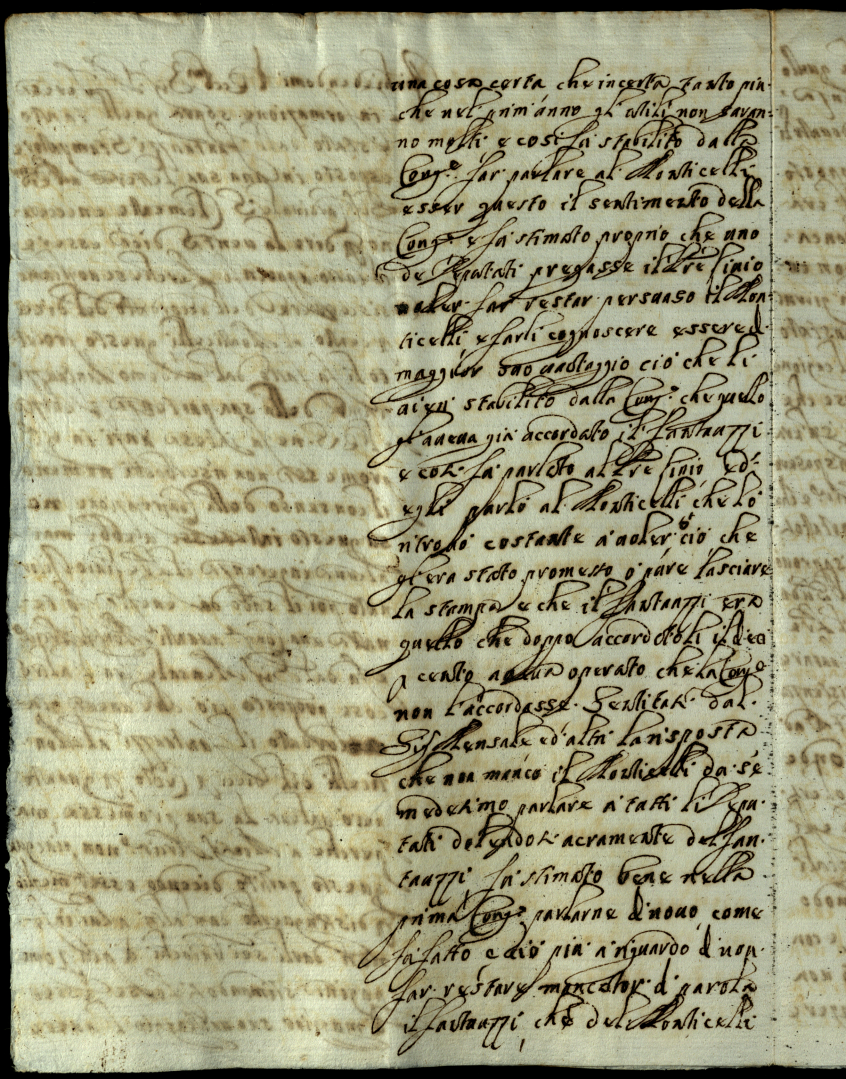 una cosa certa che incerta tanto piu
che nel prim'anno gl'utili non saran=
no molti e cosi fù stabilito dalla
Cong.e far parlare al Monticelli
esser questo il sentimento della
Cong.e e fù stimato proprio che uno
de Deputati pregasse il Pre Linio
voler far restar persuaso il Mon=
ticelli e farli cognoscere essere d.
maggior suo vantaggio ciò che li
vien stabilito dalla Cong.e che quello
gl'aveva già accordato il Fantuzzi
e così fù parlato al Pre Linio ed
egli parlò al Monticelli che lo
ritrovò costante a voler ciò che
gl'era stato promesso o pure lasciare
la stampa e che il Fantuzzi era
quello che doppo accordatoli il dieci
p cento aveva operato che la Cong.e
non l'accordasse. Sentitasi dal
Sig.r Mensale ed altri la risposta
che non mancò il Monticelli da sè
medesimo parlare a tutti li Depu=
tati dolendosi acramente del Fan=
tuzzi fù stimato bene nella
prima Cong.e parlarne di novo come
fù fatto e ciò più a riguardo di non
far restare mancator di parola
il Fantuzzi che del Monticelli